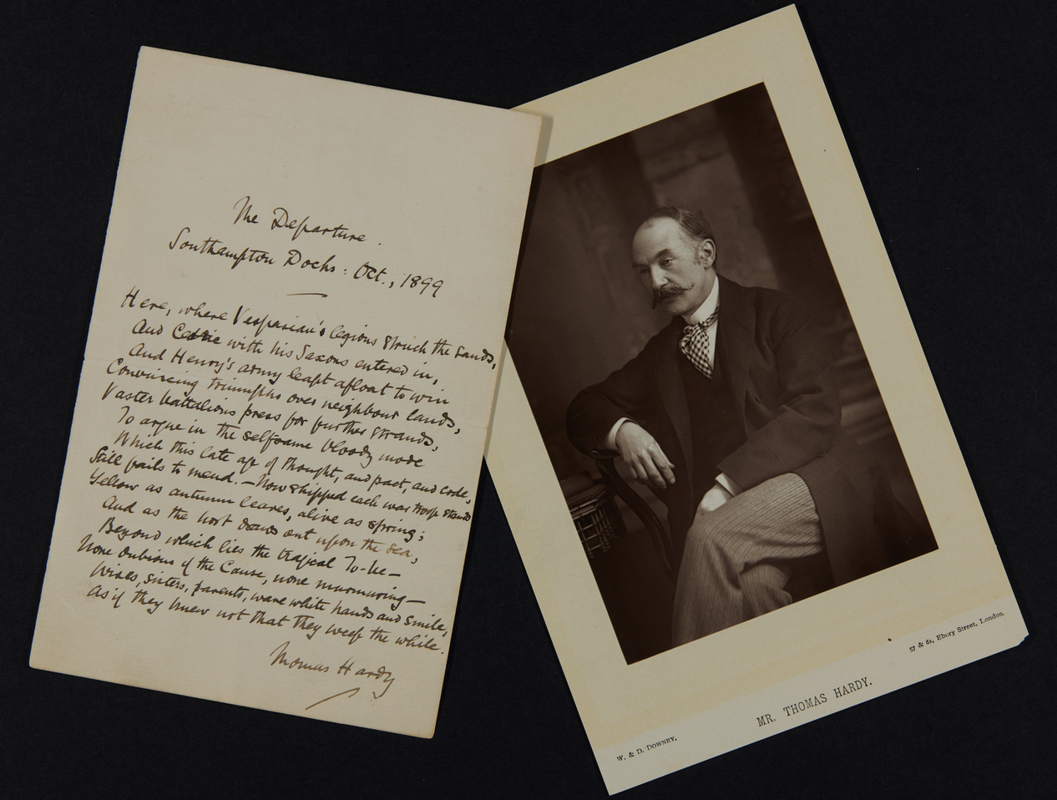 The Departure.
Southampton Docks: Oct., 1899
Here, where Vespasian's legions struck the sands,
And Cerdic with his Saxons entered in,
And Henry's army leapt afloat to win
Convincing triumphs over neighbour lands,
Vaster battalions press for further strands,
To argue in the selfsame bloody mode
Which this late age of thought, and pact, and code,
Still fails to mend. – Now shipped each war troop stands
Yellow as autumn leaves, alive as spring;
And as the host draws out upon the sea,
Beyond which lies the tragical To-be –
None dubious of the Cause, none murmuring –
Wives, sisters, parents, wave white hands and smile,
As if they knew not that they weep the while.
Thomas Hardy
W. & D. DOWNEY,
57 & 61, Ebury Street, London.
MR. THOMAS HARDY.